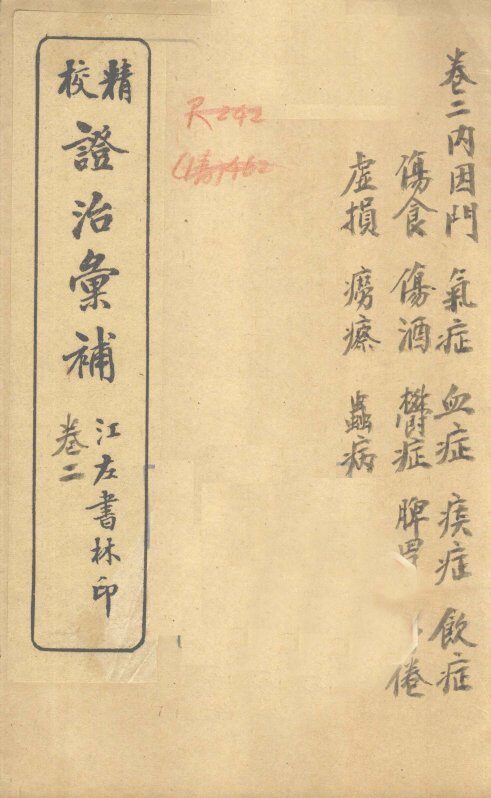 卷二内因門 氣症 血症 痰症 飲症
傷食 傷酒 鬱症 脾胃 倦
虛損 癆瘵 蟲病
R242
精校
證治彙補
江左書林印
卷二